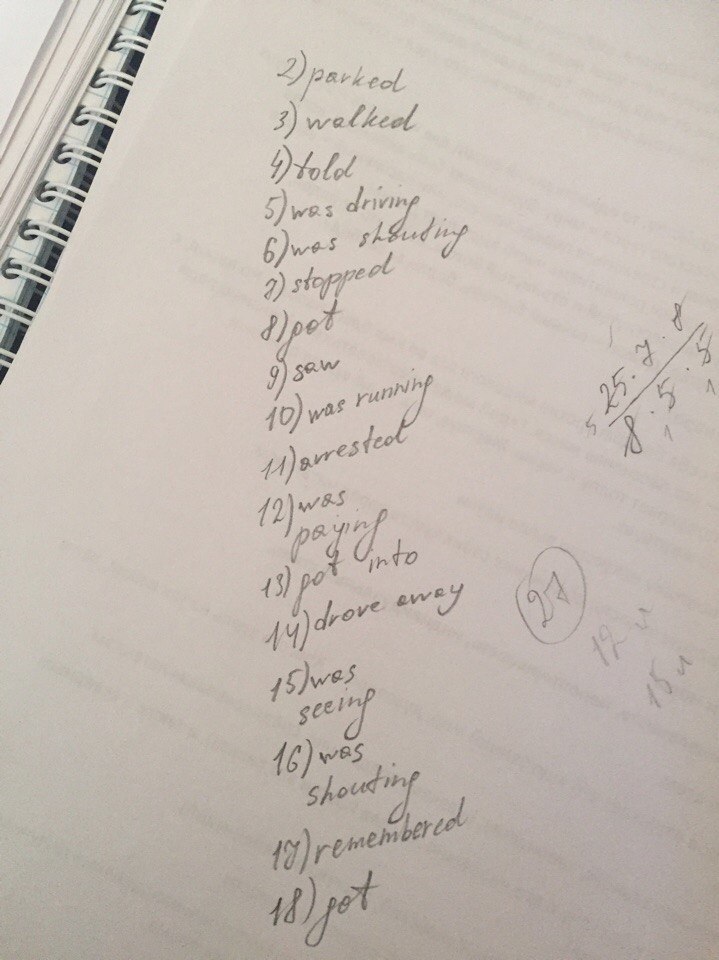 2) parked
3) walked
4) told
5) was driving
6) was shouting
7) stopped
8) got
9) saw
10) was running
11) arrested
12) was
paying
13) got into
14) drove away
15) was
seeing
16) was
shouting
17) remembered
18) got
25 · 7 · 8
8 · 5 · 5
5
1
1
27
12 ч
15 ч